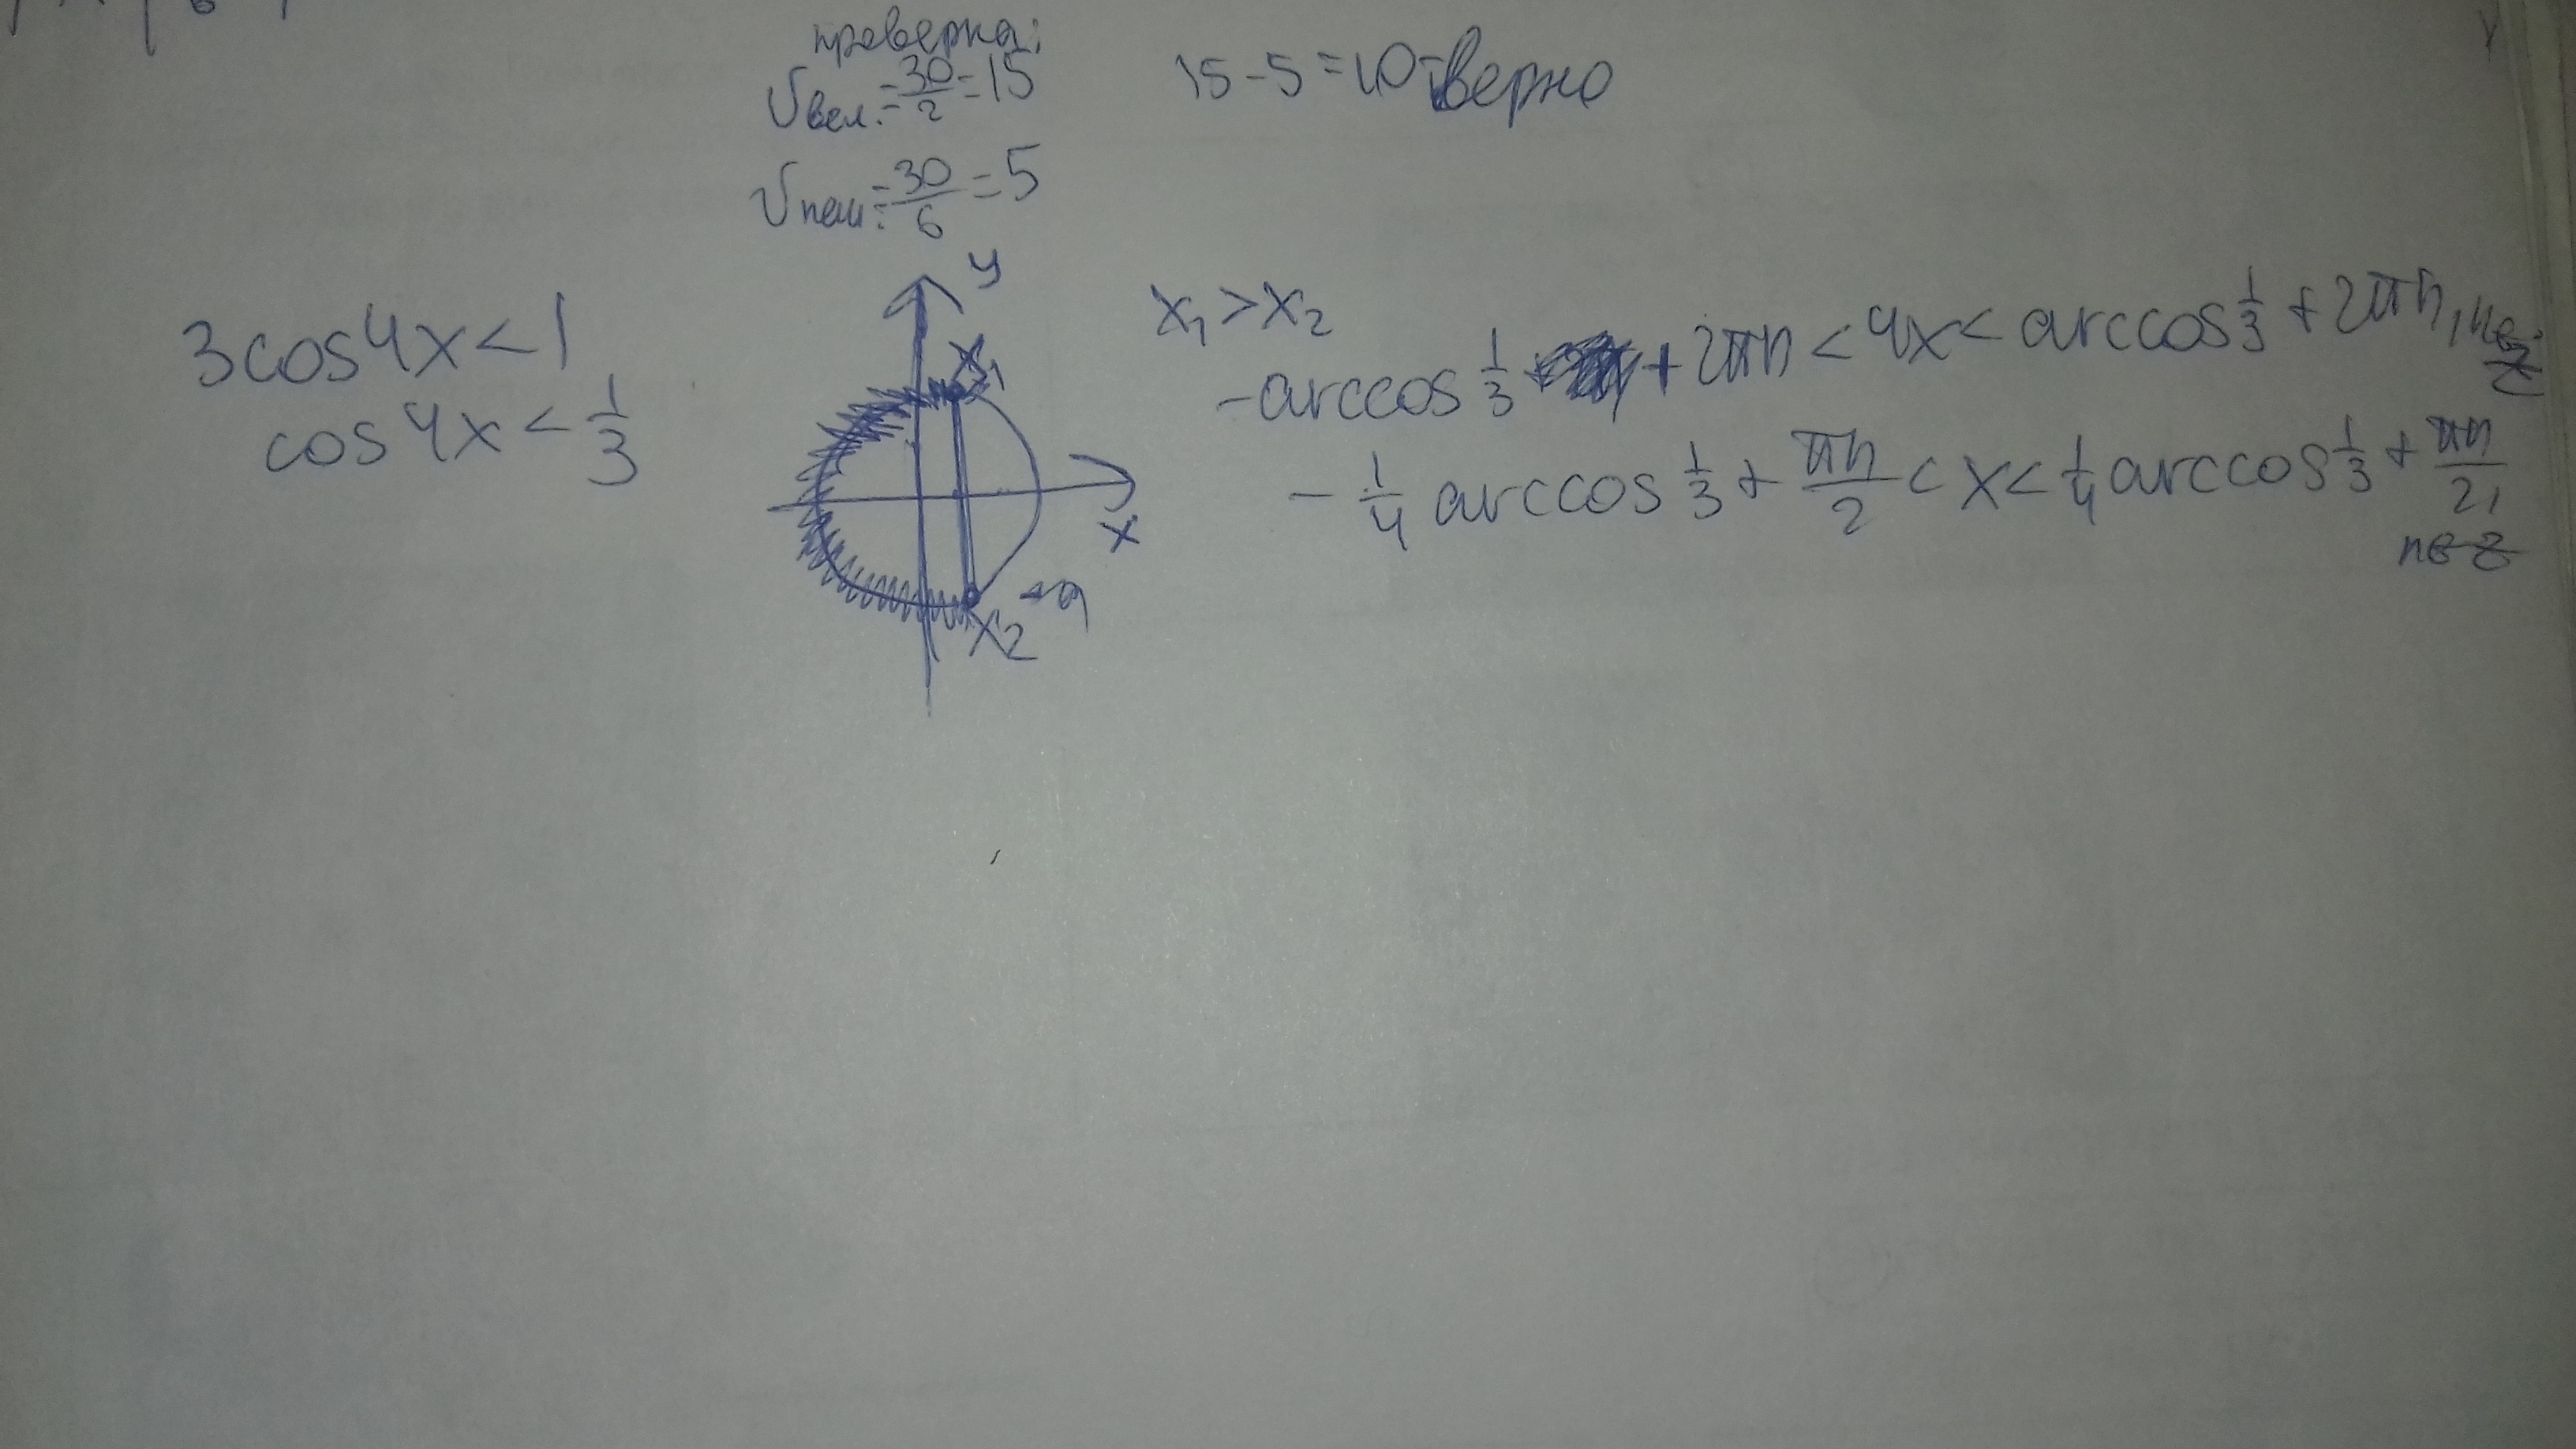 проверка:
Vвел. = 30/2 = 15
15 - 5 = 10 - верно
Vпеш = 30/6 = 5
3cos4x < 1
cos4x < 1/3
y
x₁
x
x₂
x₁ > x₂
-arccos 1/3 + 2πn < 4x < arccos 1/3 + 2πn, n∈Z
-1/4 arccos 1/3 + πn/2 < x < 1/4 arccos 1/3 + πn/2,
n∈Z